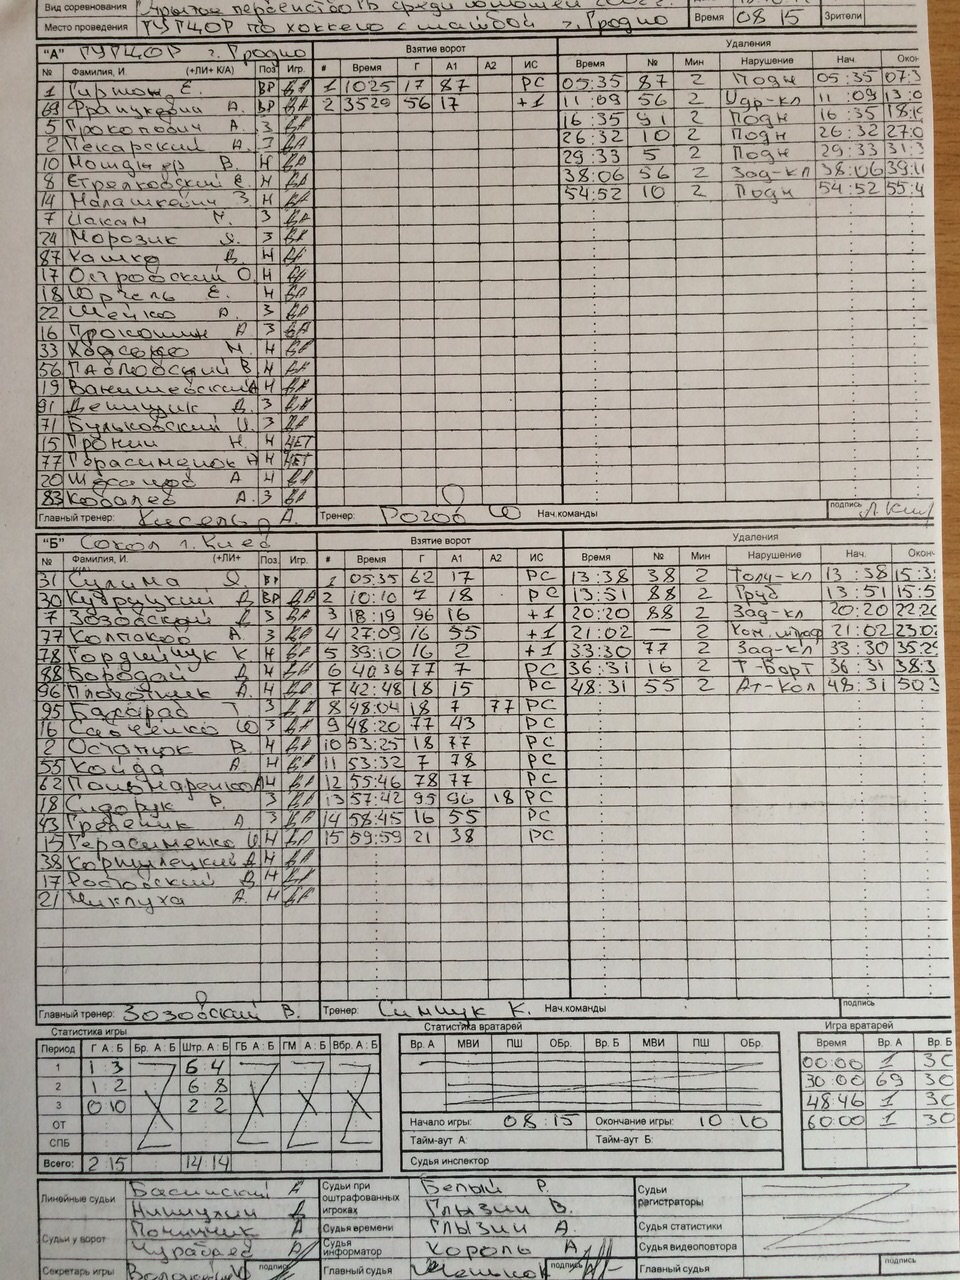 Вид соревнования
Место проведения ГУГЦОР по хоккею с шайбой г. Гродно
Время 08 15 Зрители
"А" ГУГЦОР г. Гродно Взятие ворот Удаления
№ Фамилия, И (+ЛИ+ К/А) Поз Игр. # Время Г А1 А2 ИС Время № Мин Нарушение Нач. Окон
1 Е. ВР ДА 1 1025 17 87 РС 05:35 87 2 Подн 05:35
69 А. ВР ДА 2 3529 56 17 +1 11:09 56 2 Удр-кл 11:09
5 Прокопович А. З ДА 16:35 91 2 Подн 16:35
2 Пекарский А. З ДА 26:32 10 2 Подн 26:32
10 В. Н ДА 29:33 5 2 Подн 29:33
8 Стрелковский Е. Н ДА 38:06 56 2 Зад-кл 38:06
14 Малашкевич З. Н ДА 54:52 10 2 Подн 54:52
7 Цакам М. З ДА
24 Морозик Я. З ДА
87 Кашко В. Н ДА
17 Островский О. Н ДА
18 Юргель Е. Н ДА
22 Шейко А. З ДА
16 Прокопчик А З ДА
33 Н ДА
56 Павловский В Н ДА
19 Н ДА
91 Денищик Д. З ДА
71 Бульковский И. З ДА
15 Пронин Н. Н НЕТ
77 Герасименок А Н НЕТ
20 А Н ДА
83 Ковалев А. З ДА
Главный тренер: Кисель А. Тренер: Рогов Ю Нач.команды подпись
"Б" Сокол г. Киев Взятие ворот Удаления
№ Фамилия, И. (+ЛИ+ К/А) Поз Игр. # Время Г А1 А2 ИС Время № Мин Нарушение Нач. Окон
31 Сулима Я. ВР 1 05:35 62 17 РС 13:38 38 2 Толч-кл 13:38
30 Д. ВР ДА 2 10:10 7 18 РС 13:51 88 2 Груб 13:51
7 Зозовский Д. З ДА 3 18:19 96 16 +1 20:20 88 2 Зад-кл 20:20
77 Колпаков А. З ДА 4 27:09 16 55 +1 21:02 — 2 Ком.штраф 21:02
78 Гордийчук К Н ДА 5 39:10 16 2 +1 33:30 77 2 Зад-кл 33:30
88 Бородай Д Н ДА 6 4036 77 7 РС 36:31 16 2 Т-Борт 36:31
96 Плохотник А. Н ДА 7 42:48 18 15 РС 48:31 55 2 Ат-Кол 48:31
95 З ДА 8 48:04 18 7 77 РС
16 Савченко Ю З ДА 9 48:20 77 43 РС
2 Остапюк В. Н ДА 10 53:25 18 77 РС
55 Койда А Н ДА 11 53:32 7 78 РС
62 Пономаренко А Н ДА 12 55:46 78 77 РС
18 Сидорук Р. З ДА 13 57:42 95 96 18 РС
43 Гребеник А З ДА 14 58:45 16 55 РС
15 Герасименко И Н ДА 15 59:59 21 38 РС
38 Н ДА
17 Ростовский В Н ДА
21 Миклуха А. Н ДА
Главный тренер: Зозовский В. Тренер: Симчук К. Нач.команды подпись
Статистика игры Статистика вратарей Игра вратарей
Период Г А:Б Бр. А:Б Штр. А:Б ГБ А:Б ГМ А:Б Вбр. А:Б Вр. А МВИ ПШ ОБр. Вр. Б МВИ ПШ ОБр. Время Вр. А Вр. Б
1 1 3 6 4 00:00 1 30
2 1 2 6 8 30:00 69 30
3 0 10 2 2 48:46 1 30
ОТ Начало игры: 08:15 Окончание игры: 10 10 60:00 1 30
СПБ Тайм-аут А: Тайм-аут Б:
Всего: 2 15 14:14 Судья инспектор
Линейные судьи А Судьи при оштрафованных игроках Белый Р. Судьи регистраторы
Д Глызин В.
Судьи у ворот Починчик А Судья времени Глызин А. Судья статистики
А Судья информатор Король А Судья видеоповтора
Секретарь игры подпись Главный судья подпись Главный судья подпись